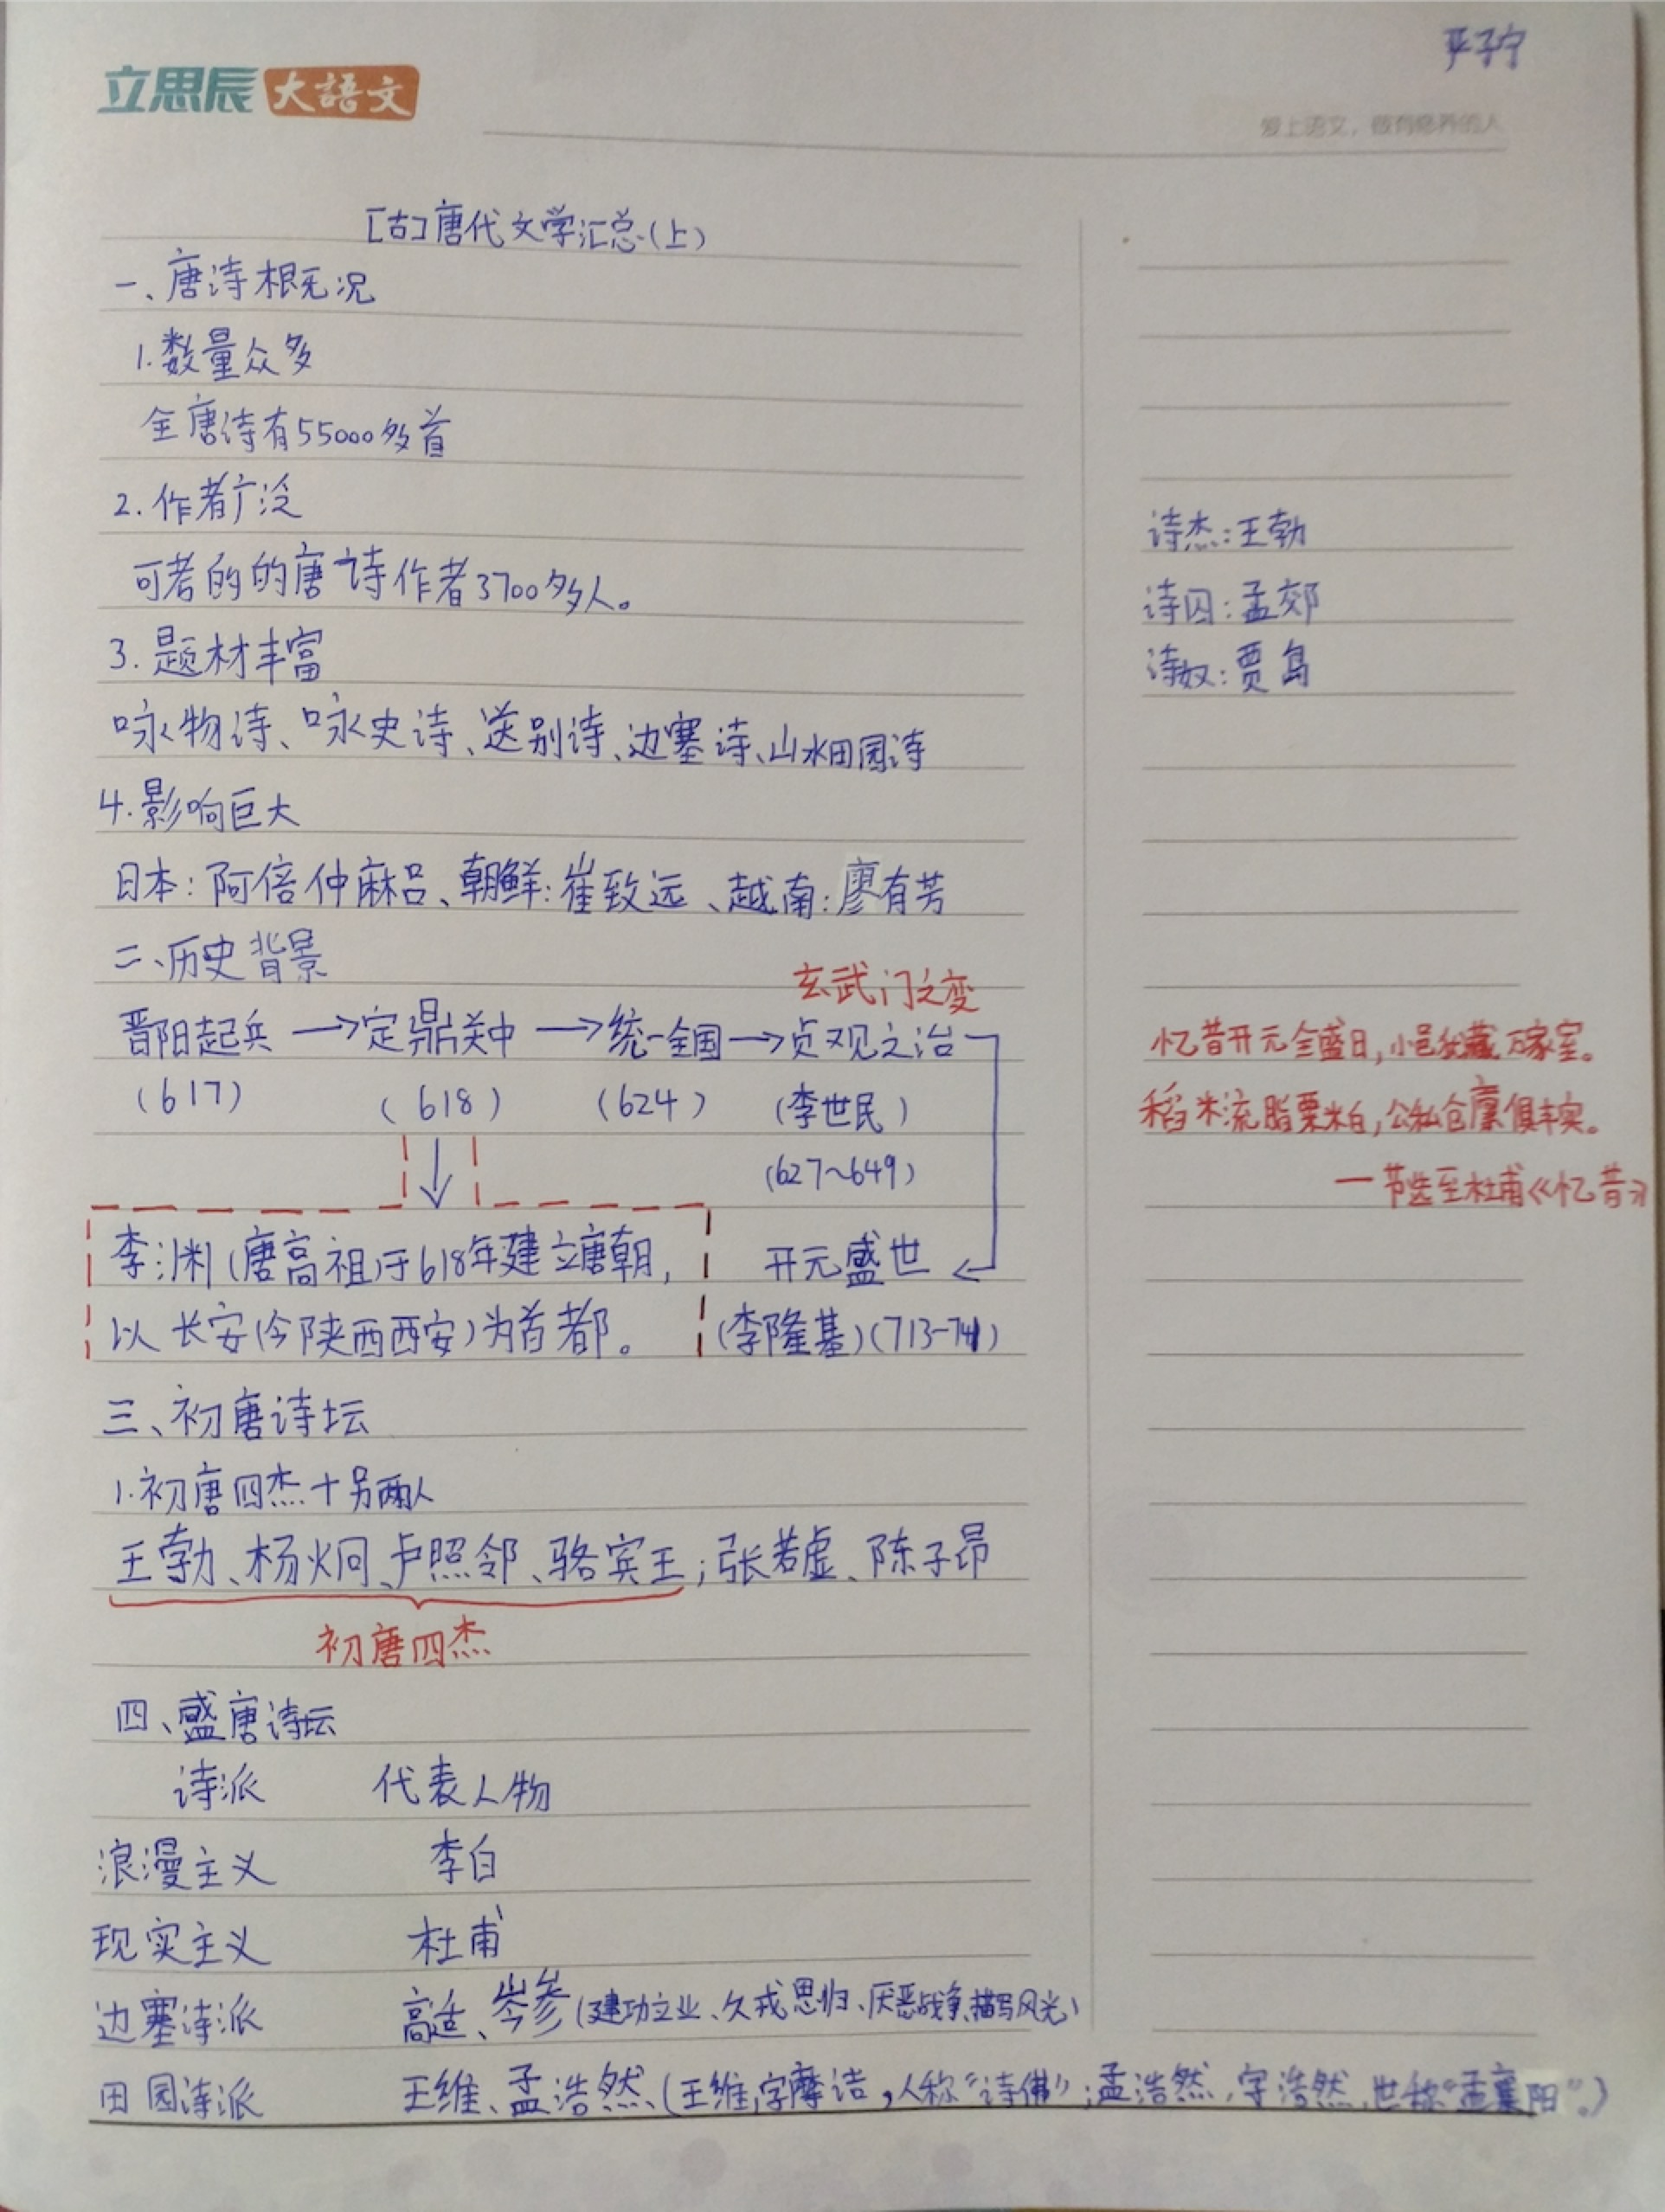 严子宁
立思辰大語文
爱上语文，做有修养的人
[古]唐代文学汇总(上)
一、唐诗概况
1.数量众多
全唐诗有55000多首
2.作者广泛
可考的的唐诗作者3700多人。
3.题材丰富
咏物诗、咏史诗、送别诗、边塞诗、山水田园诗
4.影响巨大
日本:阿倍仲麻吕、朝鲜:崔致远、越南:廖有芳
二、历史背景
玄武门之变
晋阳起兵→定鼎关中→统一全国→贞观之治
(617) (618) (624) (李世民)
(627~649)
李渊(唐高祖)于618年建立唐朝, 开元盛世
以长安(今陕西西安)为首都。 (李隆基)(713-741)
三、初唐诗坛
1.初唐四杰+另两人
王勃、杨炯、卢照邻、骆宾王;张若虚、陈子昂
初唐四杰
四、盛唐诗坛
诗派 代表人物
浪漫主义 李白
现实主义 杜甫
边塞诗派 高适、岑参(建功立业、久戎思归、厌恶战争、描写风光)
田园诗派 王维、孟浩然、(王维,字摩诘,人称“诗佛”;孟浩然,字浩然,世称“孟襄阳”。)
诗杰:王勃
诗囚:孟郊
诗奴:贾岛
忆昔开元全盛日,小邑犹藏万家室。
稻米流脂粟米白,公私仓廪俱丰实。
—节选至杜甫《忆昔》